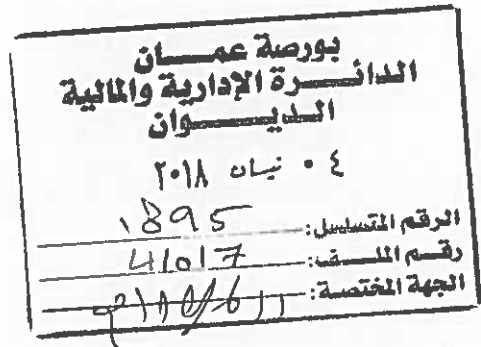 بورصة عمان
الدائرة الإدارية والمالية
الديوان
٠٤ نيسان ٢٠١٨
الرقم المتسلسل: 1895
رقم الملف: 41017
الجهة المختصة: